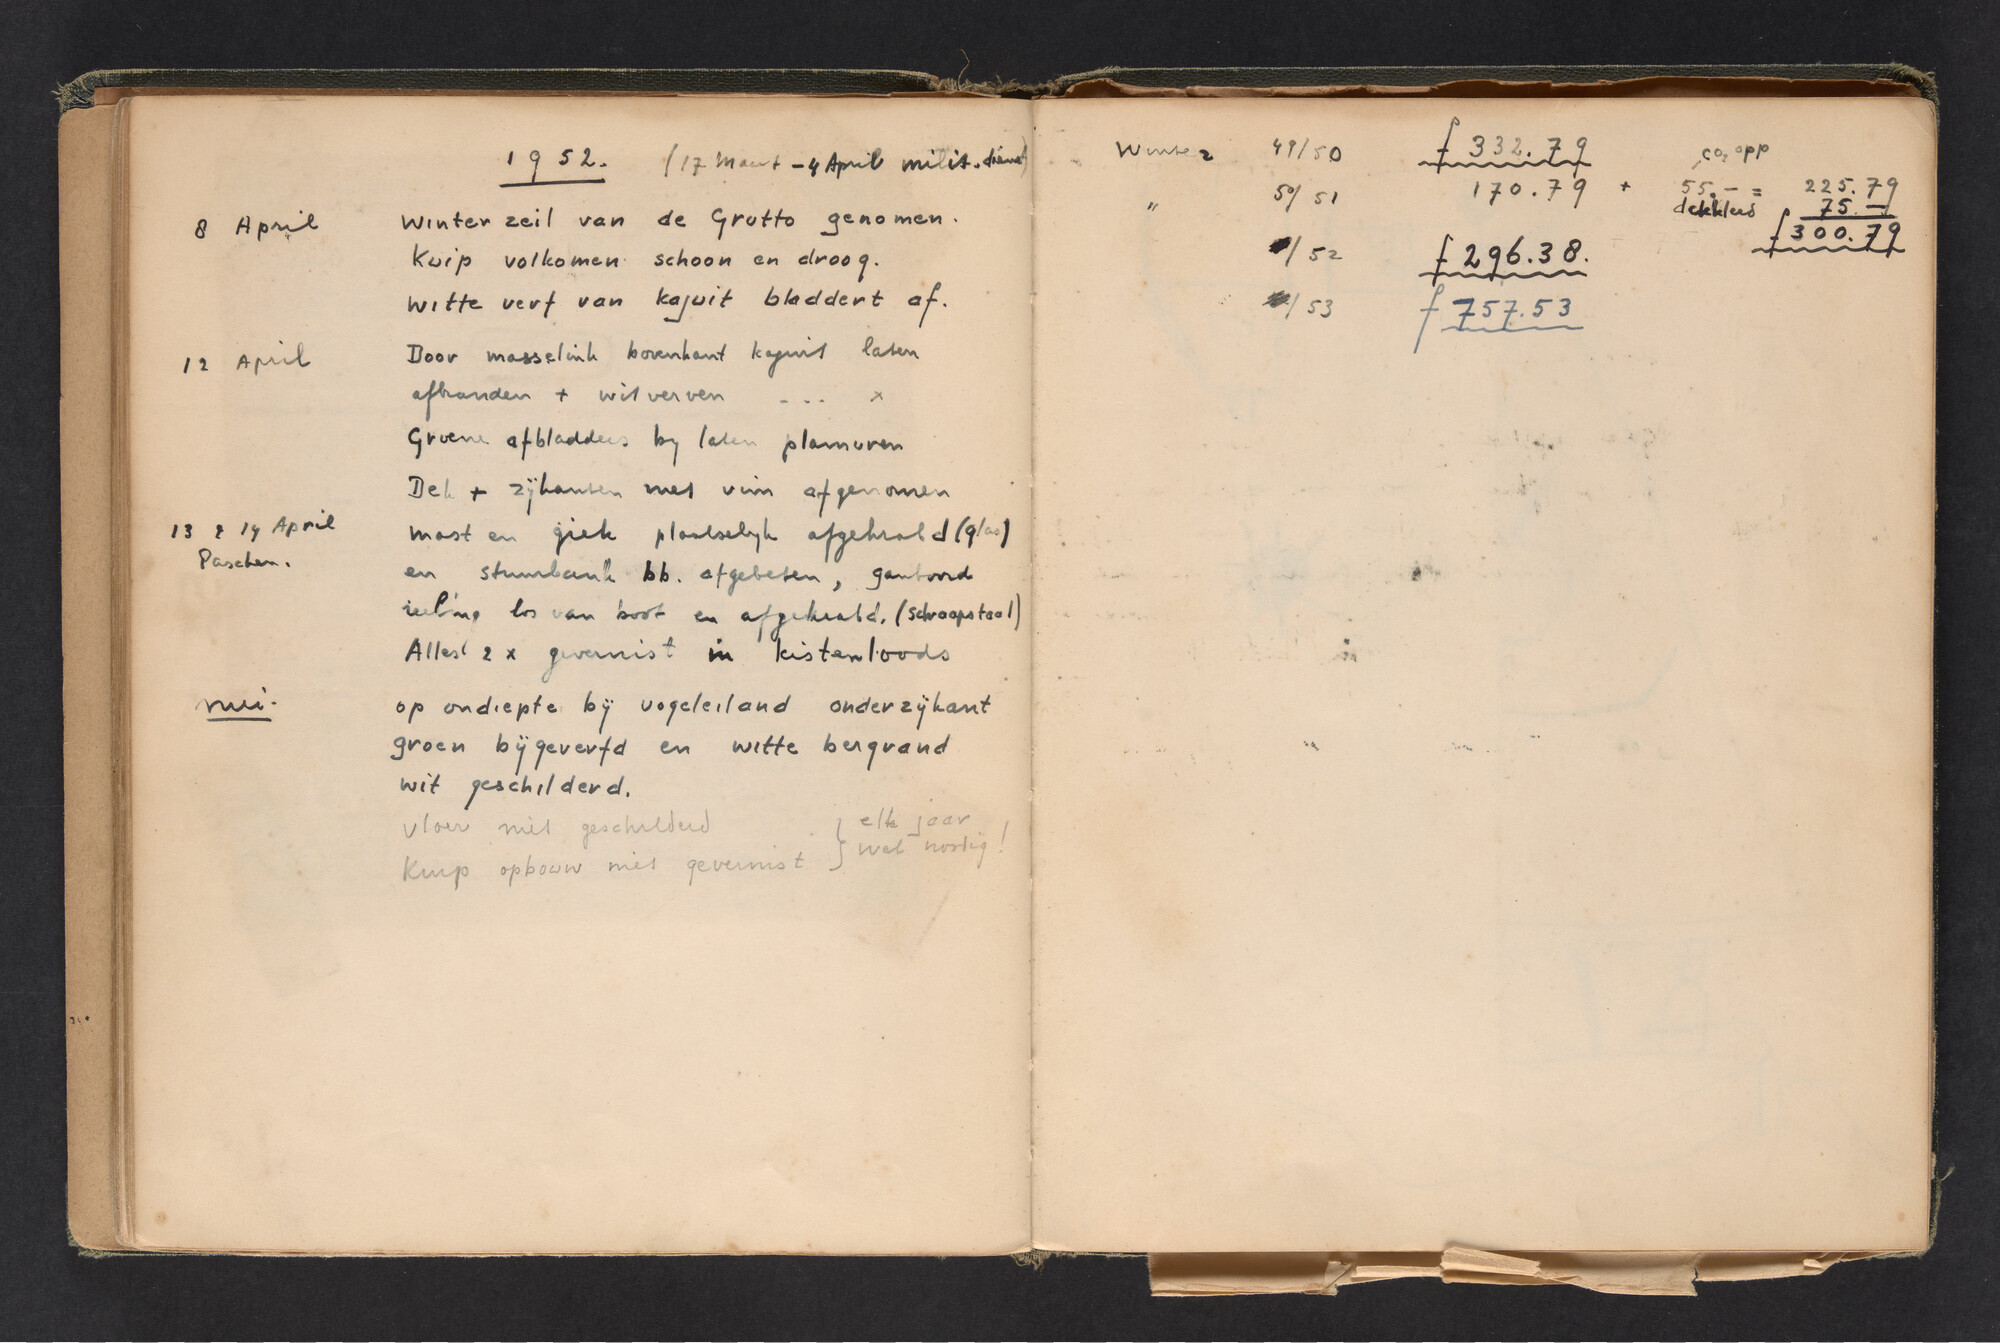 1952. (17 Maart – 4 April milit. dienst)
8 April Winterzeil van de Grutto genomen.
Kuip volkomen schoon en droog.
witte verf van kajuit bladdert af.
12 April Door masselink bovenkant kajuit laten
afbranden + wit verven - . . . x
Groene afbladders bij laten plamuren
Dek + zijkanten met vim afgenomen
13 & 14 April mast en giek plaatselijk afgekrabd (glas)
Paschen. en stuurbank bb. afgebeten, gantoord
reeling los van boot en afgekrabd. (schraapstaal)
Alles 2 x gevernist in kistenloods
mei. op ondiepte bij vogeleiland onderzijkant
groen bijgeverfd en witte bergrand
wit geschilderd.
vloer niet geschilderd } elk jaar
Kuip opbouw niet gevernist } wel nodig!
Winter 49/50 f 332.79
" 50/51 170.79 + co, opp 55.- = 225.79
dekkleed 75.-
f 300.79
/52 f 296.38.
/53 f 757.53